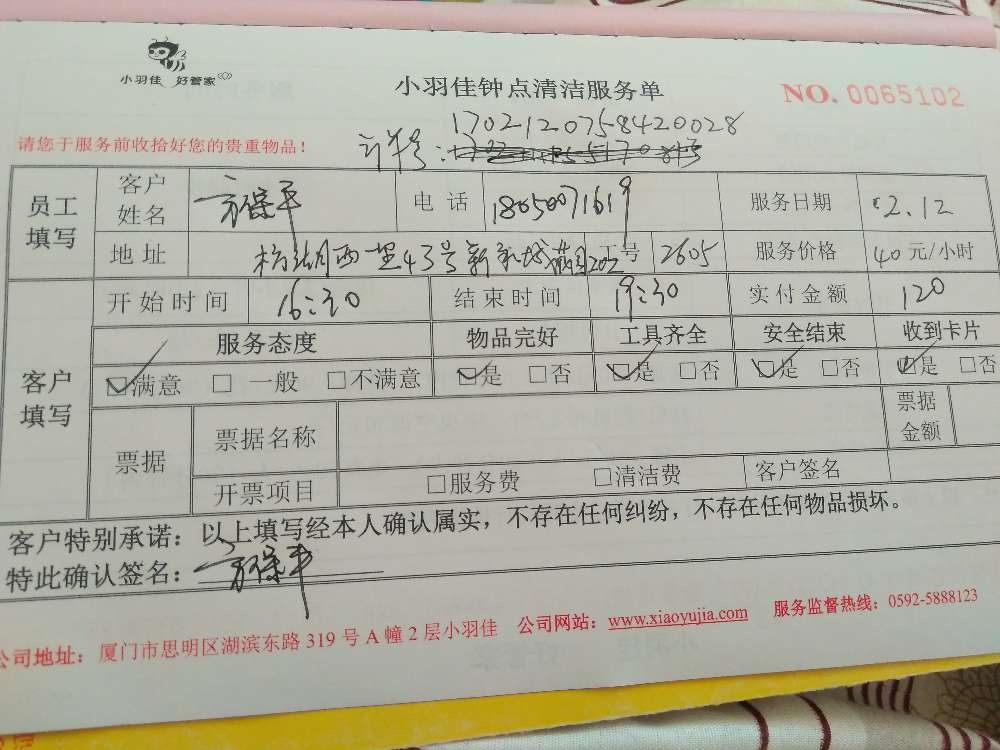 小羽佳 好管家
小羽佳钟点清洁服务单
NO. 0065102
请您于服务前收拾好您的贵重物品！
1702120758420028
订单号：
员工填写 客户姓名 方保平 电话 18050071619 服务日期 2.12
地址 西里43号新 202 工号 2605 服务价格 40元/小时
开始时间 16:30 结束时间 19:30 实付金额 120
客户填写 服务态度 物品完好 工具齐全 安全结束 收到卡片
☑满意 □一般 □不满意 ☑是 □否 ☑是 □否 ☑是 □否 ☑是 □否
票据 票据名称 票据金额
开票项目 □服务费 □清洁费 客户签名
客户特别承诺：以上填写经本人确认属实，不存在任何纠纷，不存在任何物品损坏。
特此确认签名：方保平
公司地址：厦门市思明区湖滨东路319号A幢2层小羽佳 公司网站：www.xiaoyujia.com 服务监督热线：0592-5888123